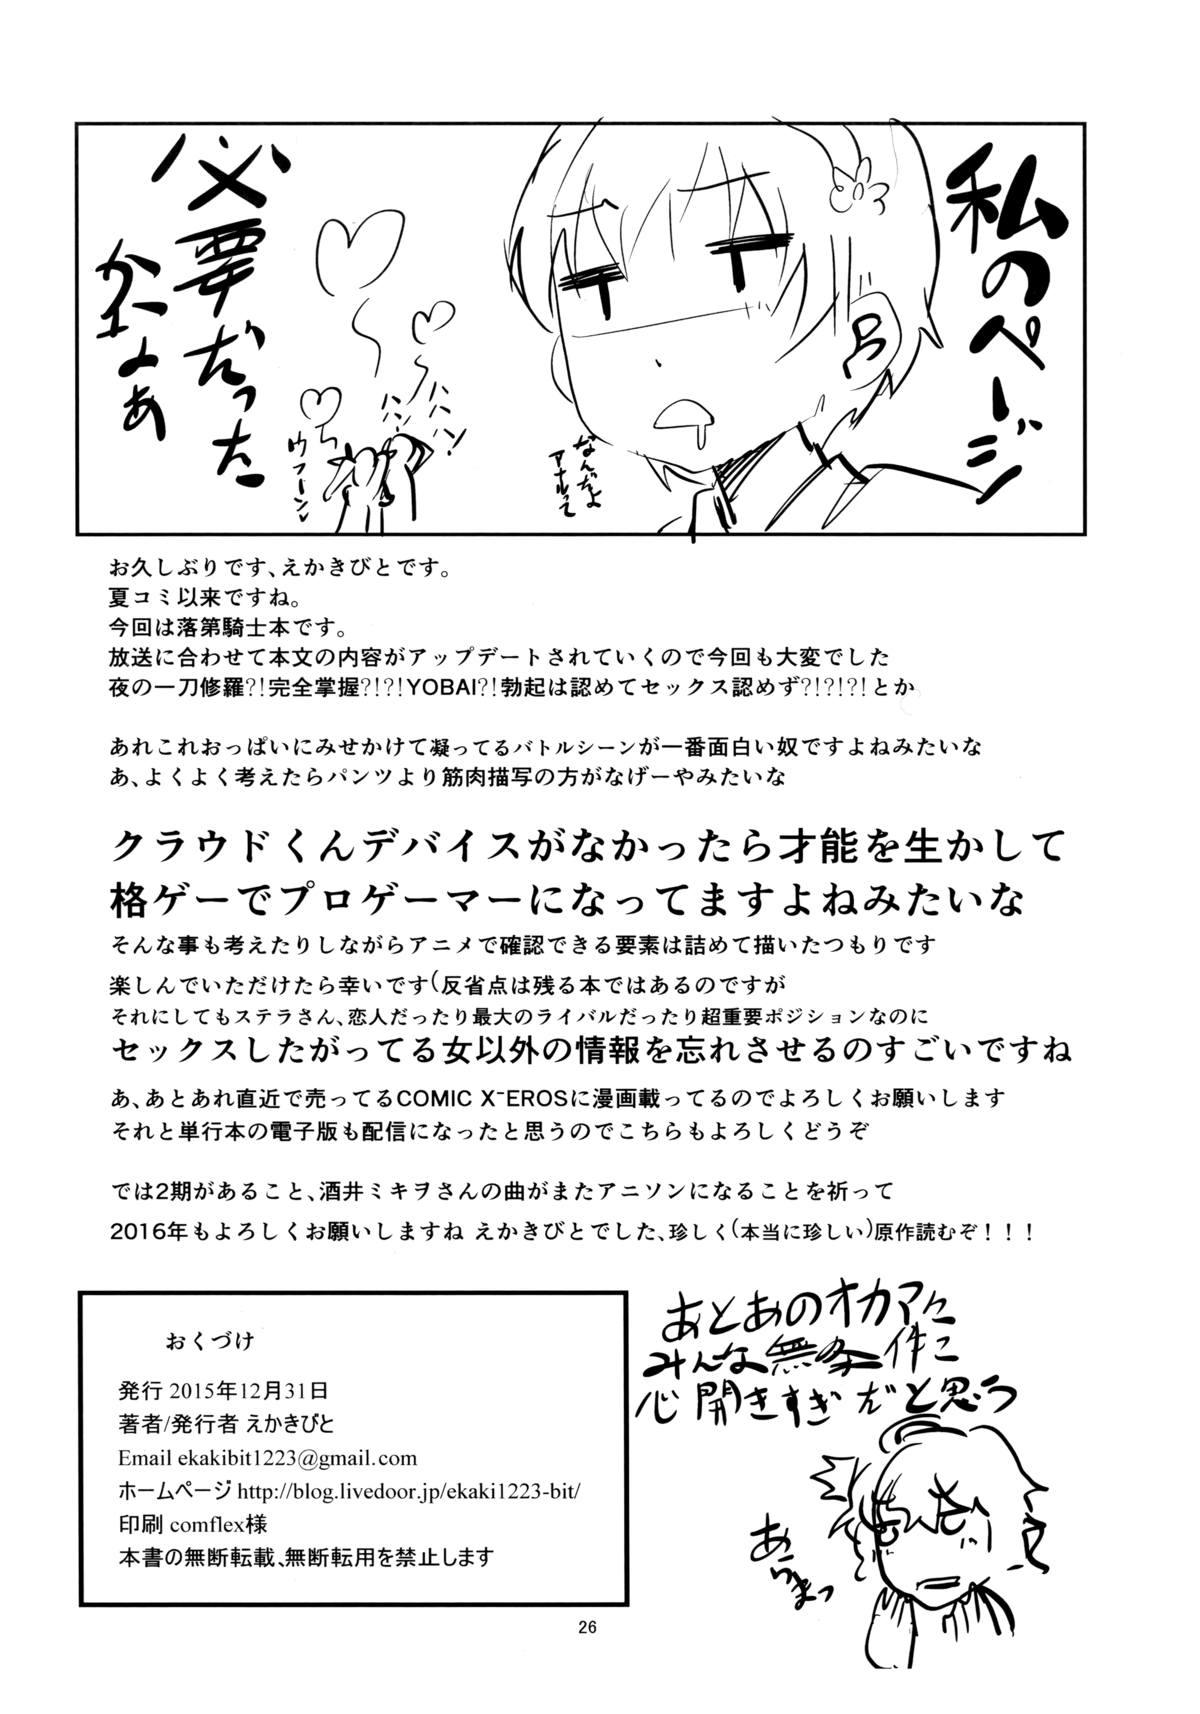 私のページ
必要だった
かよぉ
なんだよ
アナルって
ハンハン
ハン
ウフーン
お久しぶりです、えかきびとです。
夏コミ以来ですね。
今回は落第騎士本です。
放送に合わせて本文の内容がアップデートされていくので今回も大変でした
夜の一刀修羅?!完全掌握?!?!YOBAI?!勃起は認めてセックス認めず?!?!?!とか
あれこれおっぱいにみせかけて凝ってるバトルシーンが一番面白い奴ですよねみたいな
あ、よくよく考えたらパンツより筋肉描写の方がなげーやみたいな
クラウドくんデバイスがなかったら才能を生かして
格ゲーでプロゲーマーになってますよねみたいな
そんな事も考えたりしながらアニメで確認できる要素は詰めて描いたつもりです
楽しんでいただけたら幸いです(反省点は残る本ではあるのですが
それにしてもステラさん、恋人だったり最大のライバルだったり超重要ポジションなのに
セックスしたがってる女以外の情報を忘れさせるのすごいですね
あ、あとあれ直近で売ってるCOMIC X-EROSに漫画載ってるのでよろしくお願いします
それと単行本の電子版も配信になったと思うのでこちらもよろしくどうぞ
では2期があること、酒井ミキヲさんの曲がまたアニソンになることを祈って
2016年もよろしくお願いしますね えかきびとでした、珍しく(本当に珍しい)原作読むぞ！！！
おくづけ
発行 2015年12月31日
著者/発行者 えかきびと
Email ekakibit1223@gmail.com
ホームページ http://blog.livedoor.jp/ekaki1223-bit/
印刷 comflex様
本書の無断転載、無断転用を禁止します
あとあのオカマに
みんな無条件に
心開きすぎだと思う
あらまっ
26